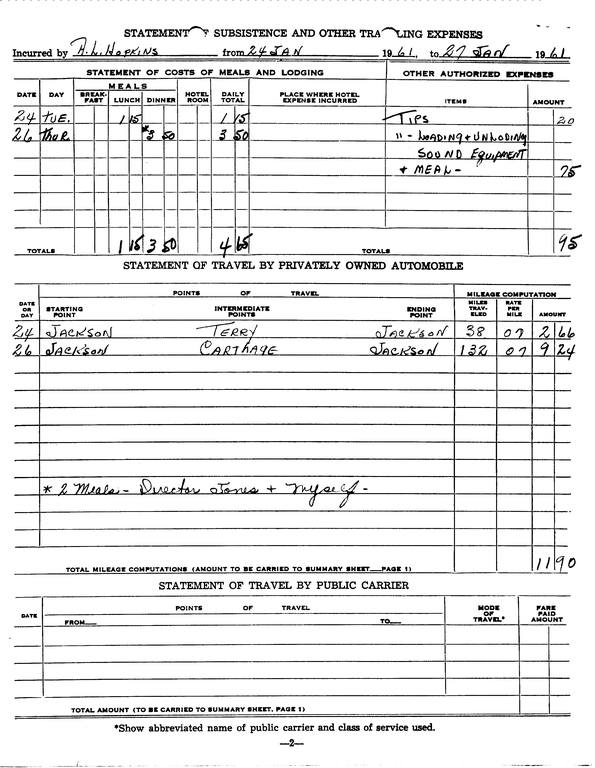 STATEMENT OF SUBSISTENCE AND OTHER TRAVELING EXPENSES
Incurred by A.L. HOPKINS from 24 JAN 1961, to 27 JAN 1961
STATEMENT OF COSTS OF MEALS AND LODGING OTHER AUTHORIZED EXPENSES
DATE DAY MEALS BREAK-FAST LUNCH DINNER HOTEL ROOM DAILY TOTAL PLACE WHERE HOTEL EXPENSE INCURRED ITEMS AMOUNT
24 TUE. 1 15 1 15 TIPS 20
26 THUR *3 50 3 50 " - LOADING + UNLODING
SOUND EQUIPMENT
+ MEAL - 75
TOTALS 1 15 3 50 4 65 TOTALS 95
STATEMENT OF TRAVEL BY PRIVATELY OWNED AUTOMOBILE
DATE OR DAY POINTS OF TRAVEL MILEAGE COMPUTATION
STARTING POINT INTERMEDIATE POINTS ENDING POINT MILES TRAV-ELED RATE PER MILE AMOUNT
24 JACKSON TERRY JACKSON 38 07 2 66
26 JACKSON CARTHAGE JACKSON 132 07 9 24
* 2 Meals - Director Jones + Myself -
TOTAL MILEAGE COMPUTATIONS (AMOUNT TO BE CARRIED TO SUMMARY SHEET—PAGE 1) 11 90
STATEMENT OF TRAVEL BY PUBLIC CARRIER
DATE POINTS OF TRAVEL MODE OF TRAVEL* FARE PAID AMOUNT
FROM— TO—
TOTAL AMOUNT (TO BE CARRIED TO SUMMARY SHEET, PAGE 1)
*Show abbreviated name of public carrier and class of service used.
—2—